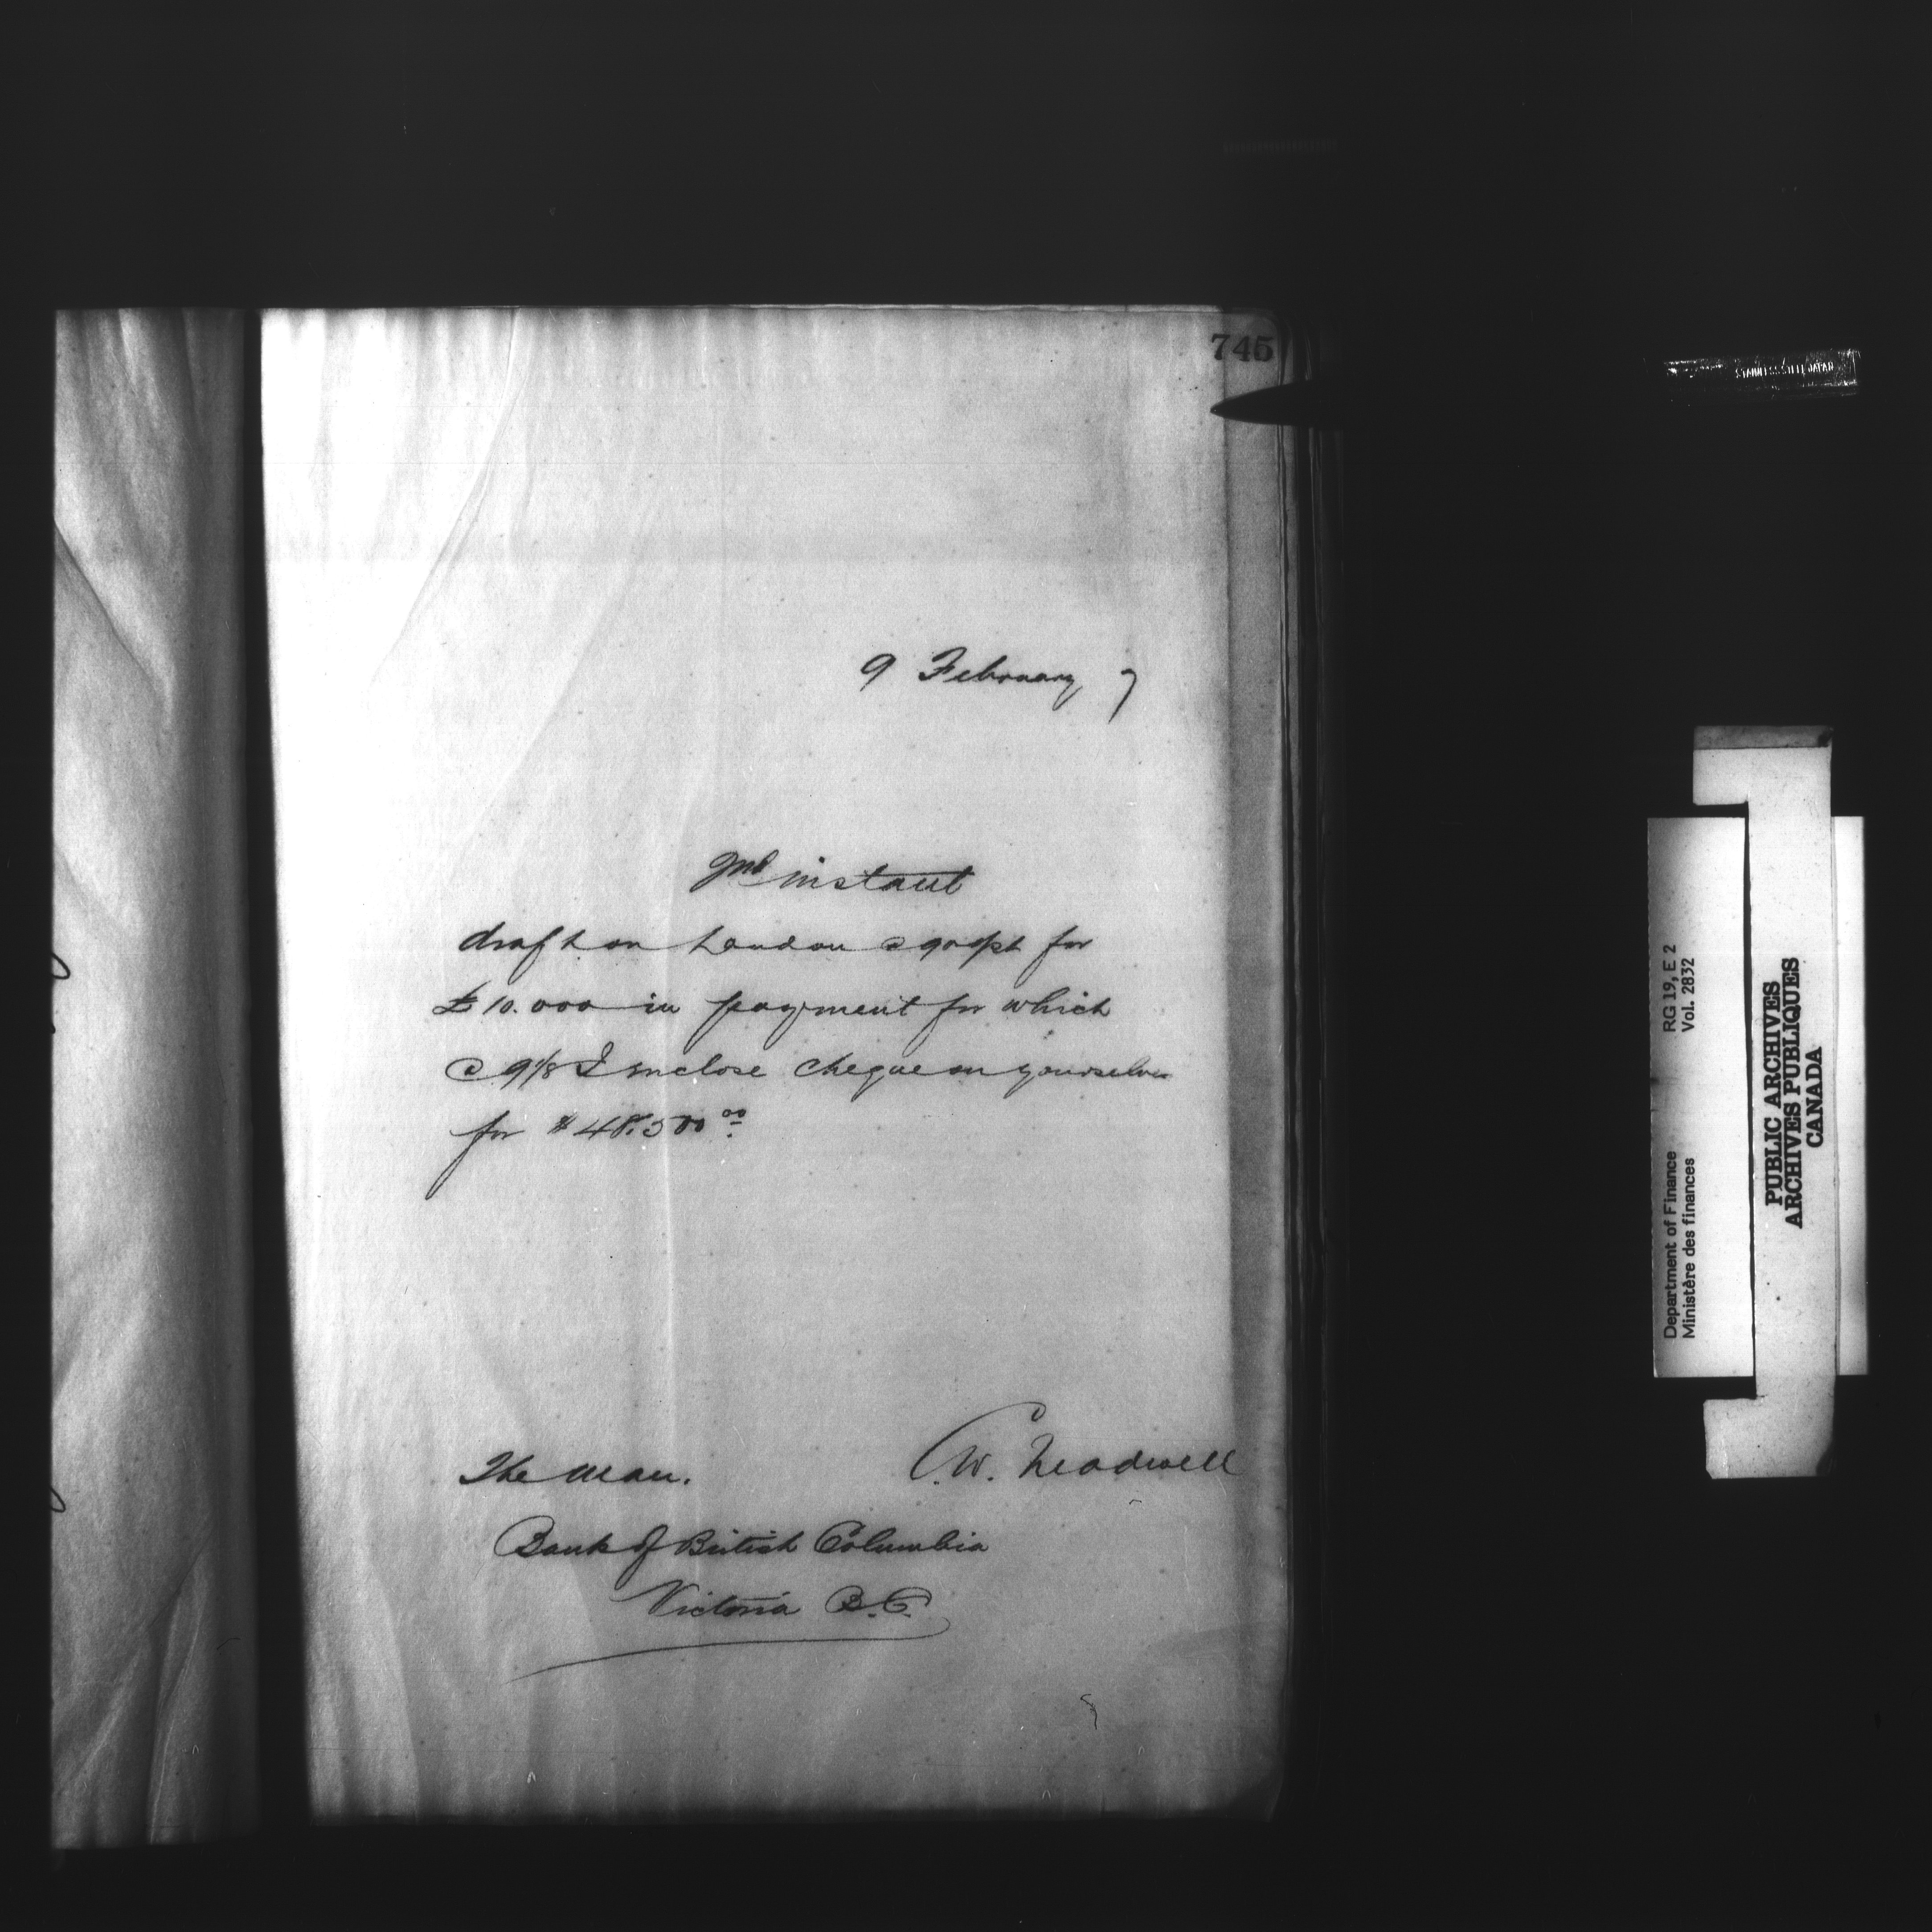 745
9 February 7
instant
draft on London @ 90 d/st for
£10.000 in payment for which
@ 9⅛ I enclose cheque on yourselves
for $48.500 00
The Man.
C.W. Treadwell
Bank of British Columbia
Victoria B.C.
STAINLESS STEEL JAPAN
Department of Finance RG 19, E 2
Ministère des finances Vol. 2832
PUBLIC ARCHIVES
ARCHIVES PUBLIQUES
CANADA